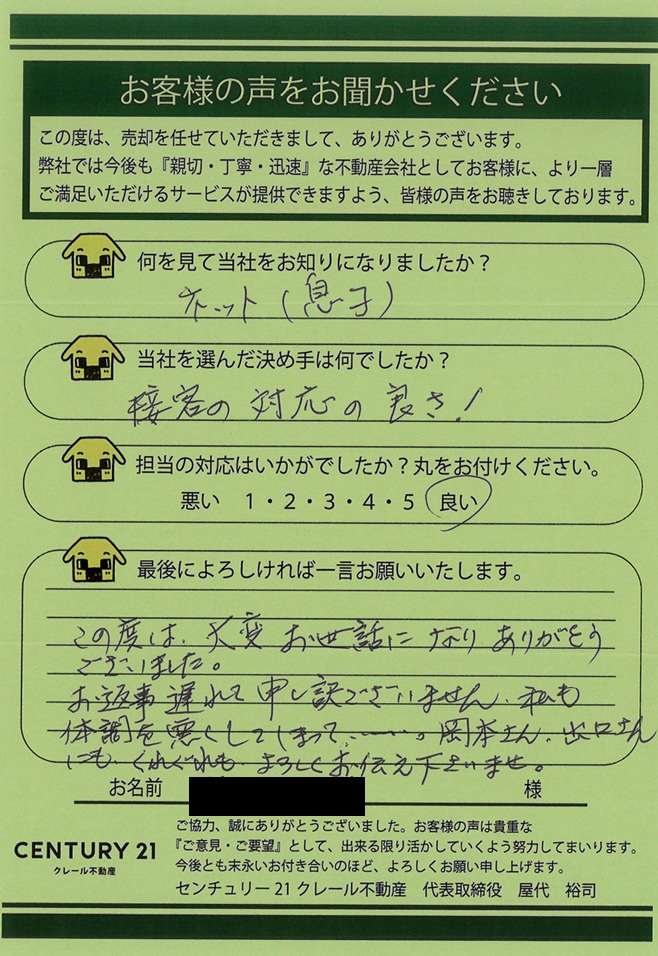 お客様の声をお聞かせください
この度は、売却を任せていただきまして、ありがとうございます。
弊社では今後も『親切・丁寧・迅速』な不動産会社としてお客様に、より一層
ご満足いただけるサービスが提供できますよう、皆様の声をお聴きしております。
何を見て当社をお知りになりましたか？
ネット(息子)
当社を選んだ決め手は何でしたか？
接客の対応の良さ！
担当の対応はいかがでしたか？丸をお付けください。
悪い 1・2・3・4・5 良い
最後によろしければ一言お願いいたします。
この度は、大変お世話になりありがとう
ございました。
お返事遅れて申し訳ございません、私も
体調を悪くしてしまって……。岡本さん、出口さん
にも、くれぐれも、よろしくお伝え下さいませ。
お名前 様
CENTURY 21
クレール不動産
ご協力、誠にありがとうございました。お客様の声は貴重な
『ご意見・ご要望』として、出来る限り活かしていくよう努力してまいります。
今後とも末永いお付き合いのほど、よろしくお願い申し上げます。
センチュリー21クレール不動産 代表取締役 屋代 裕司